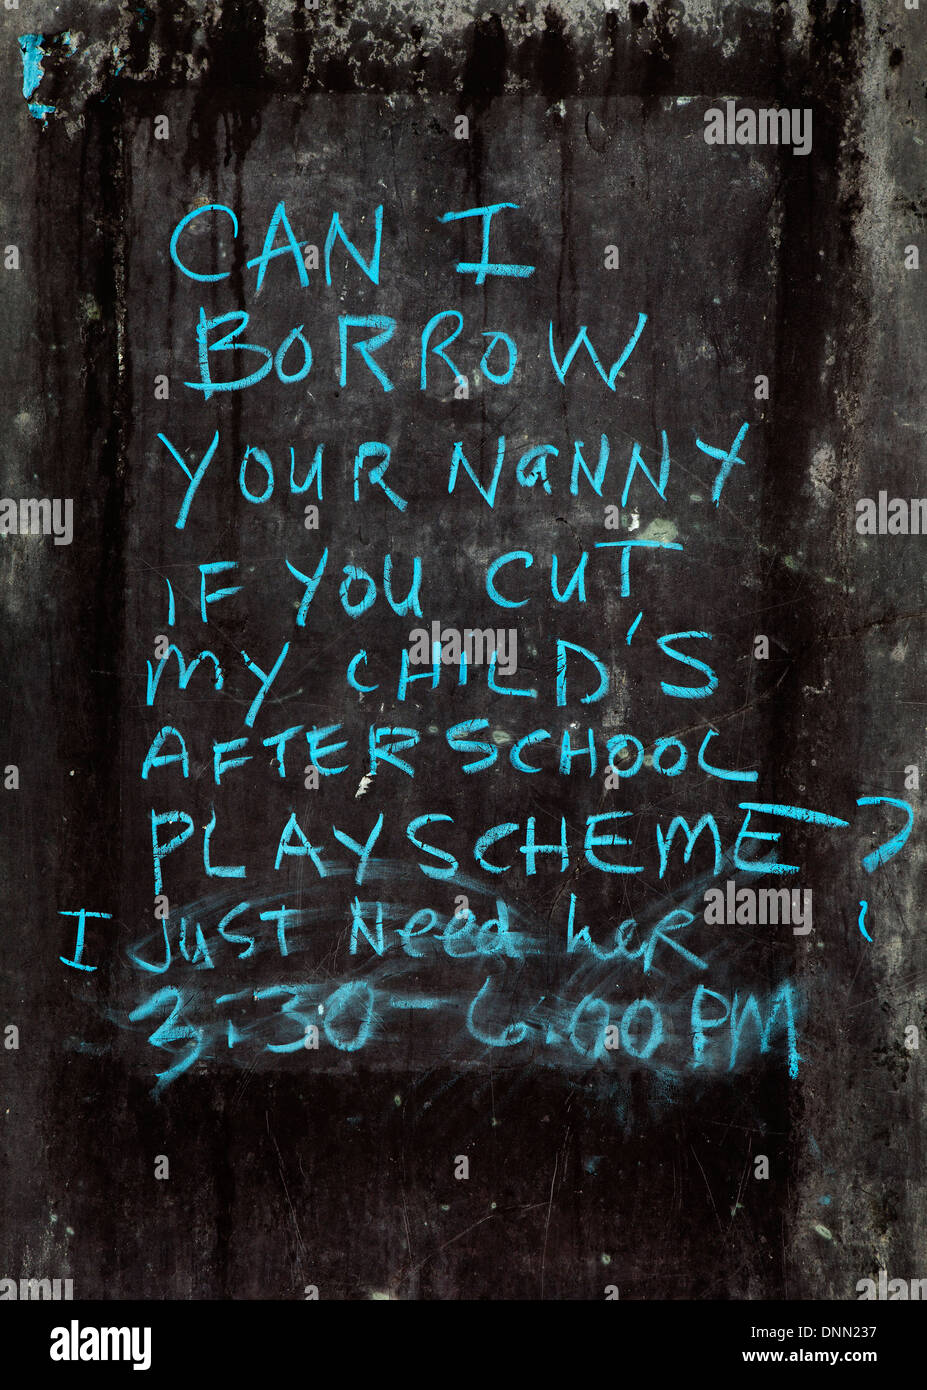 CAN I
BORROW
YOUR NaNNY
IF YOU CUT
MY CHiLD'S
AFTERSCHOOL
PLAYSCHEME?
I JUST Need heR
3:30-6:00 PM
alamy
alamy
alamy
alamy
alamy stock photo
DNN237
www.alamy.com